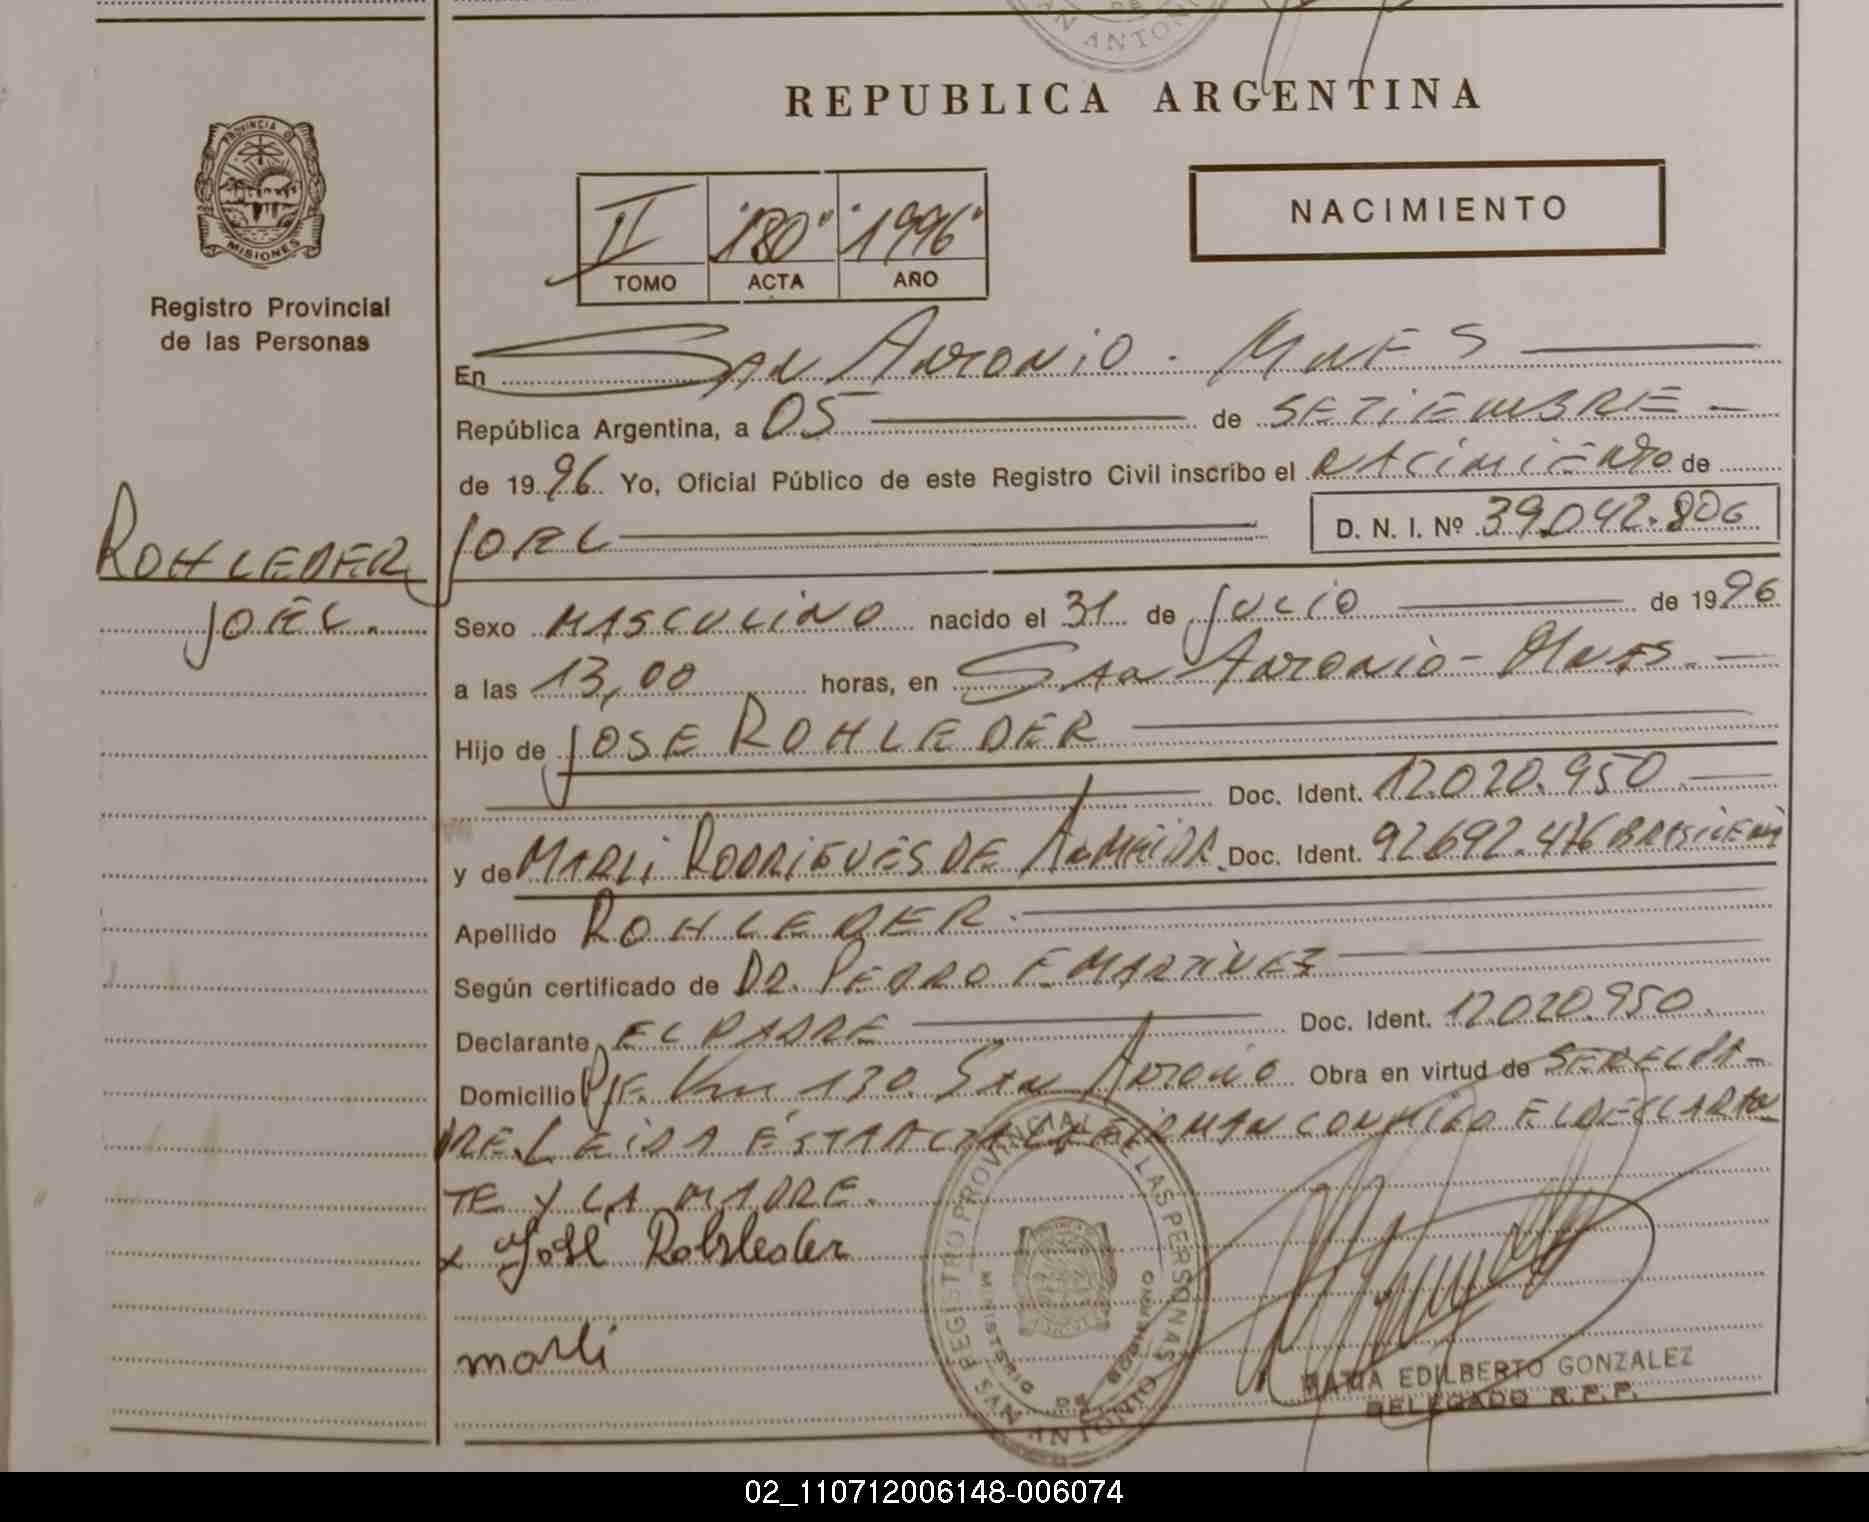 REPUBLICA ARGENTINA
PROVINCIA D
MISIONES
Registro Provincial
de las Personas
II "180" "1996"
TOMO ACTA AÑO
NACIMIENTO
En SAN ANTONIO - MNES
República Argentina, a 05 de SETIEMBRE -
de 1996 Yo, Oficial Público de este Registro Civil inscribo el NACIMIENTO de
JOEL D. N. I. Nº 39.042.806
ROHLEDER
JOEL.
Sexo MASCULINO nacido el 31 de JULIO de 1996
a las 13,00 horas, en SAN ANTONIO - MNES. -
Hijo de JOSE ROHLEDER
Doc. Ident. 12.020.950
y de MARLI RODRIGUES DE ALMEIDA. Doc. Ident. 92.692.476 BRASILEÑA
Apellido ROHLEDER.
Según certificado de DR. PEDRO F. MARTINEZ
Declarante EL PADRE Doc. Ident. 12.020.950.
Domicilio Km 130 SAN ANTONIO Obra en virtud de SER EL PA-
DRE. LEIDA ESTA ACTA LA FIRMAN CONMIGO EL DECLARAN
TE Y LA MADRE.
x José Rohleder
marli
REGISTRO PROVINCIAL DE LAS PERSONAS
MINISTERIO DE GOBIERNO
SAN ANTONIO
EDILBERTO GONZALEZ
DELEGADO R.P.P.
02_110712006148-006074